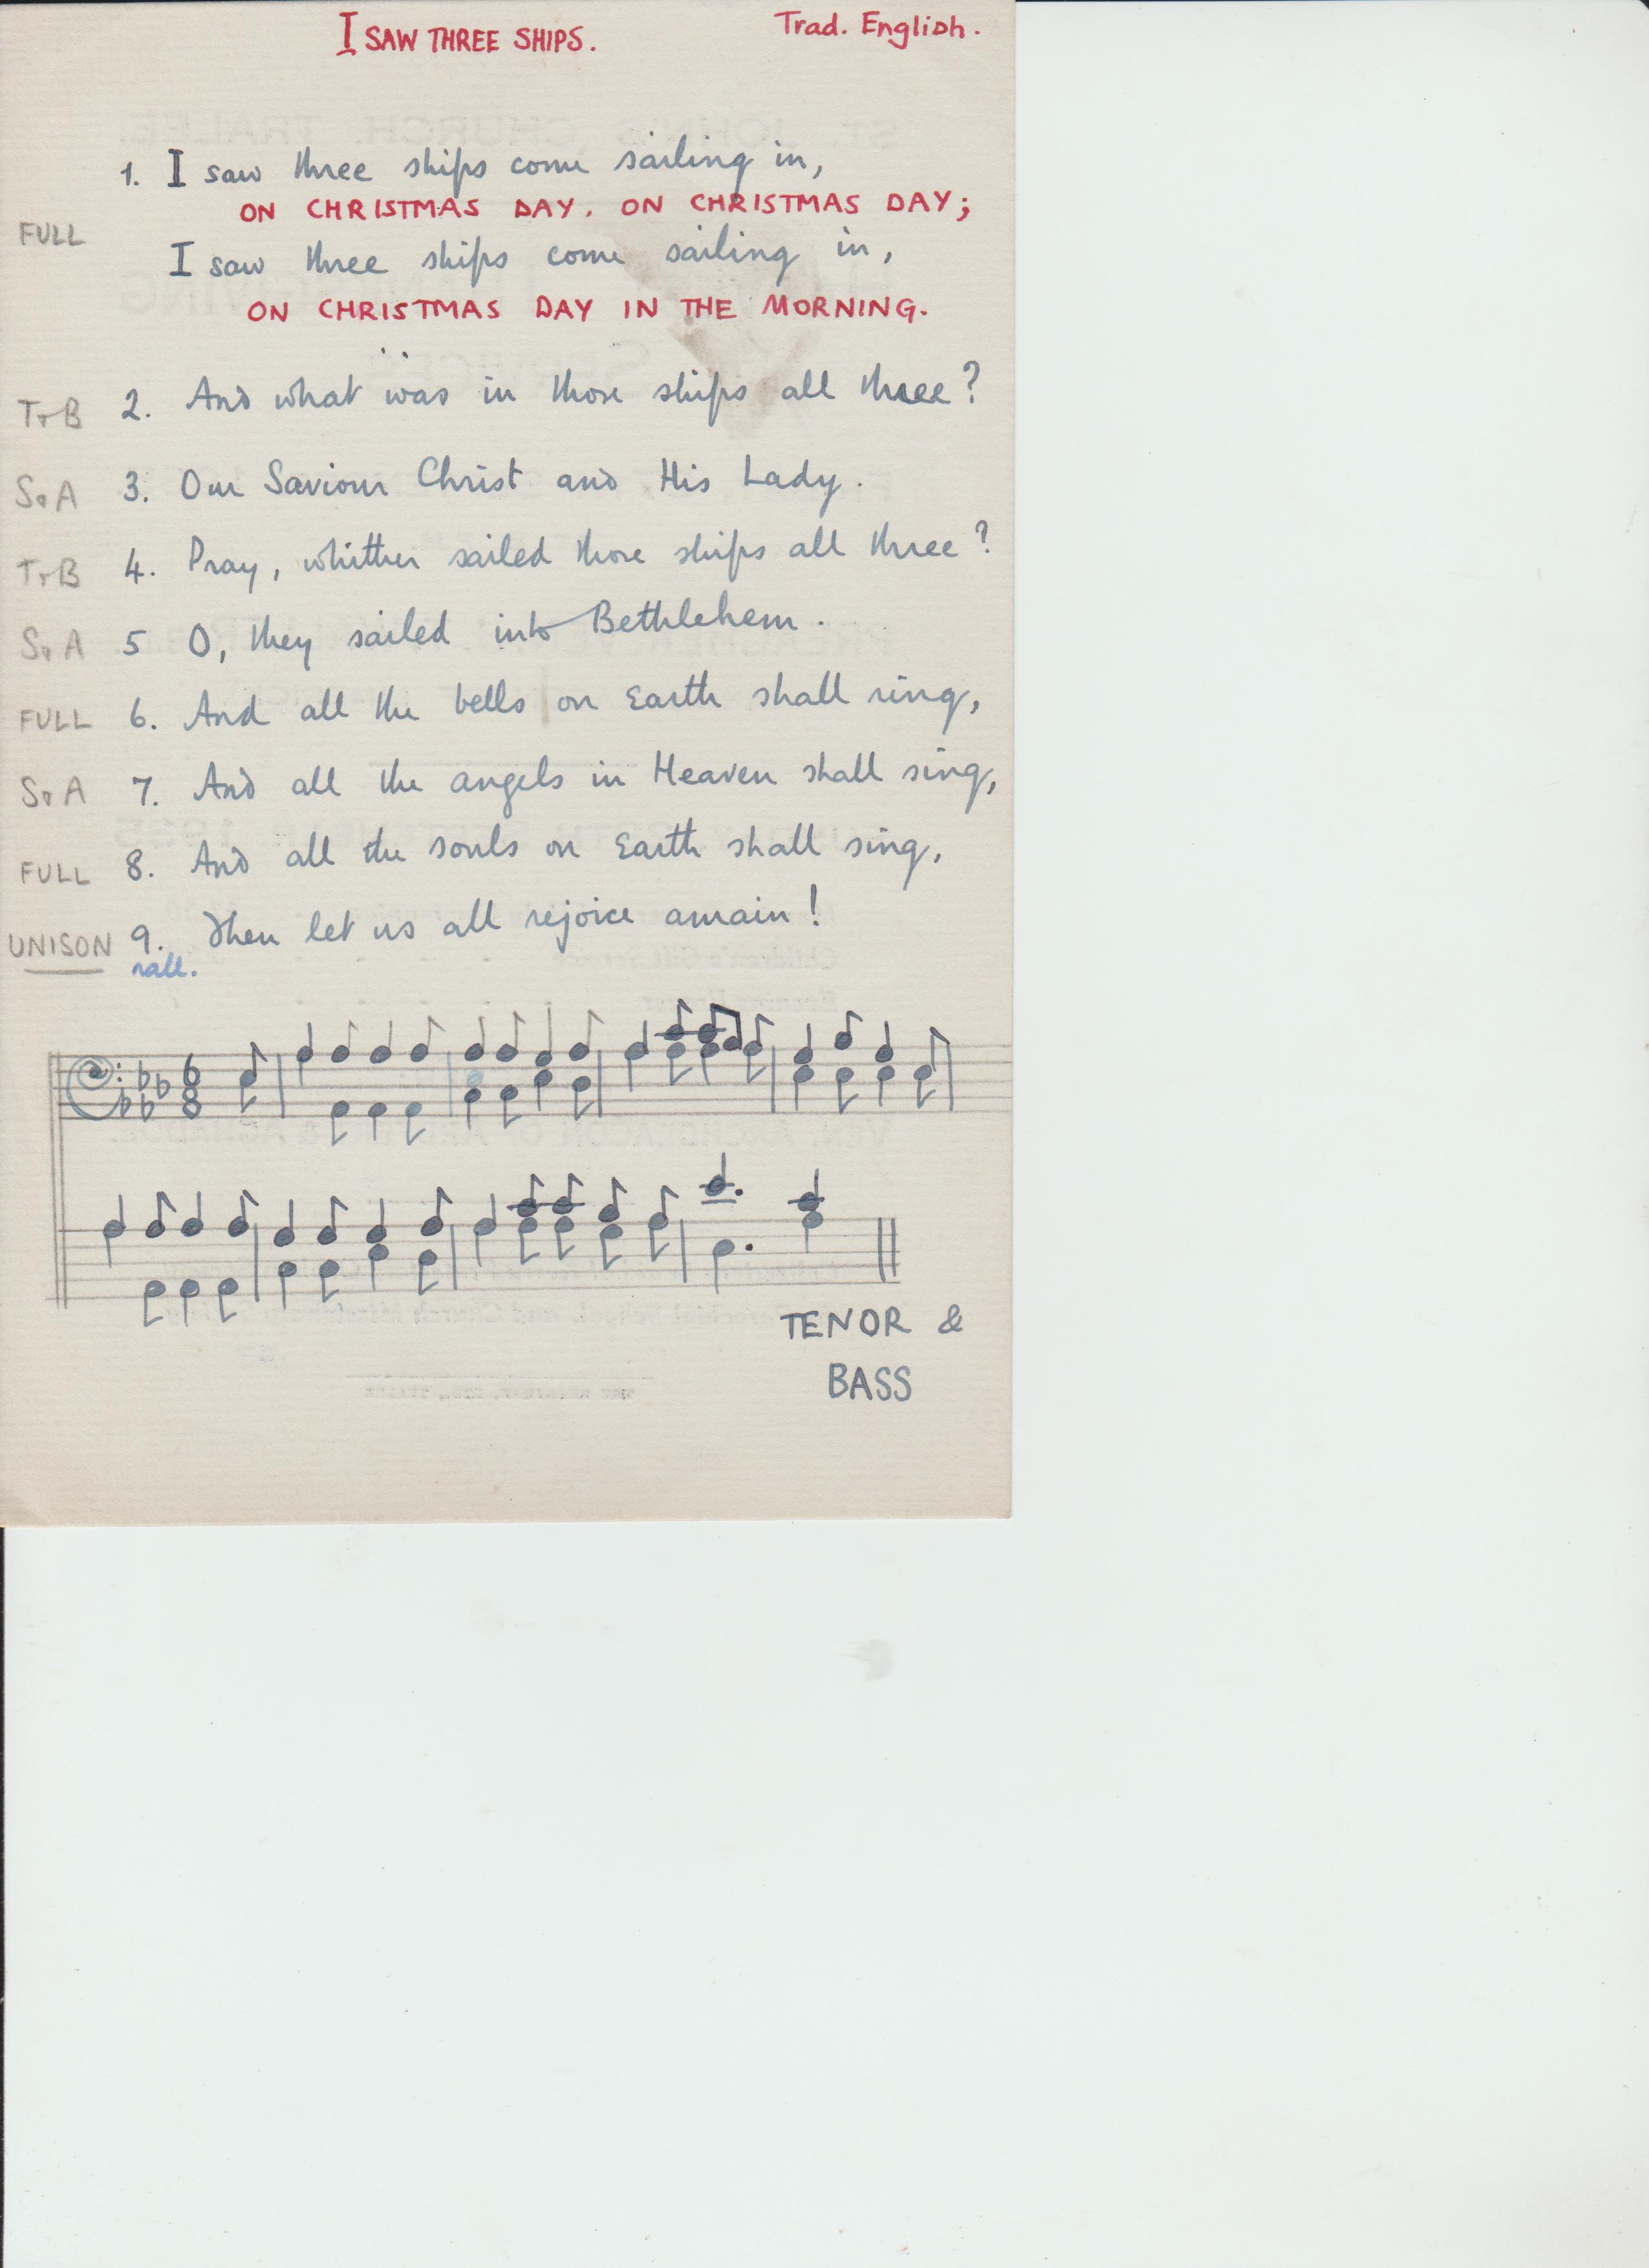 I SAW THREE SHIPS.
Trad. English.
1. I saw three ships come sailing in,
ON CHRISTMAS DAY, ON CHRISTMAS DAY;
FULL
I saw three ships come sailing in,
ON CHRISTMAS DAY IN THE MORNING.
T+B 2. And what was in those ships all three?
S+A 3. Our Saviour Christ and His Lady.
T+B 4. Pray, whither sailed those ships all three?
S+A 5 O, they sailed into Bethlehem.
FULL 6. And all the bells on Earth shall ring,
S+A 7. And all the angels in Heaven shall sing,
FULL 8. And all the souls on Earth shall sing,
UNISON 9. Then let us all rejoice amain!
rall.
6
8
TENOR &
BASS